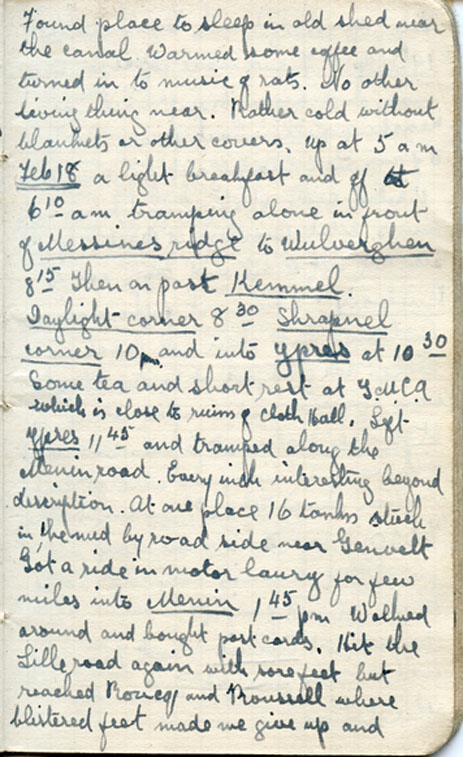 Found place to sleep in old shed near
the canal. Warmed some coffee and
turned in to music of rats. No other
living thing near. Rather cold without
blankets or other covers. Up at 5 am
Feb 18 a light breakfast and off
6 10 am tramping alone in front
of Messines ridge to Wulverghen
8 15 Then on past Kemmel.
Daylight corner 8 30 Shrapnel
corner 10 and into Ypres at 10 30
Some tea and short rest at Y.M.C.A
which is close to ruins of Cloth Hall. Left
Ypres 11 45 and tramped along the
Menin road. Every inch interesting beyond
discription. At one place 16 tanks stuck
in the mud by road side near
Got a ride in motor laury for few
miles into Menin 1 45 pm Walked
around and bought post cards. Hit the
Lille road again with sore feet but
reached Roncq and where
blistered feet made me give up and